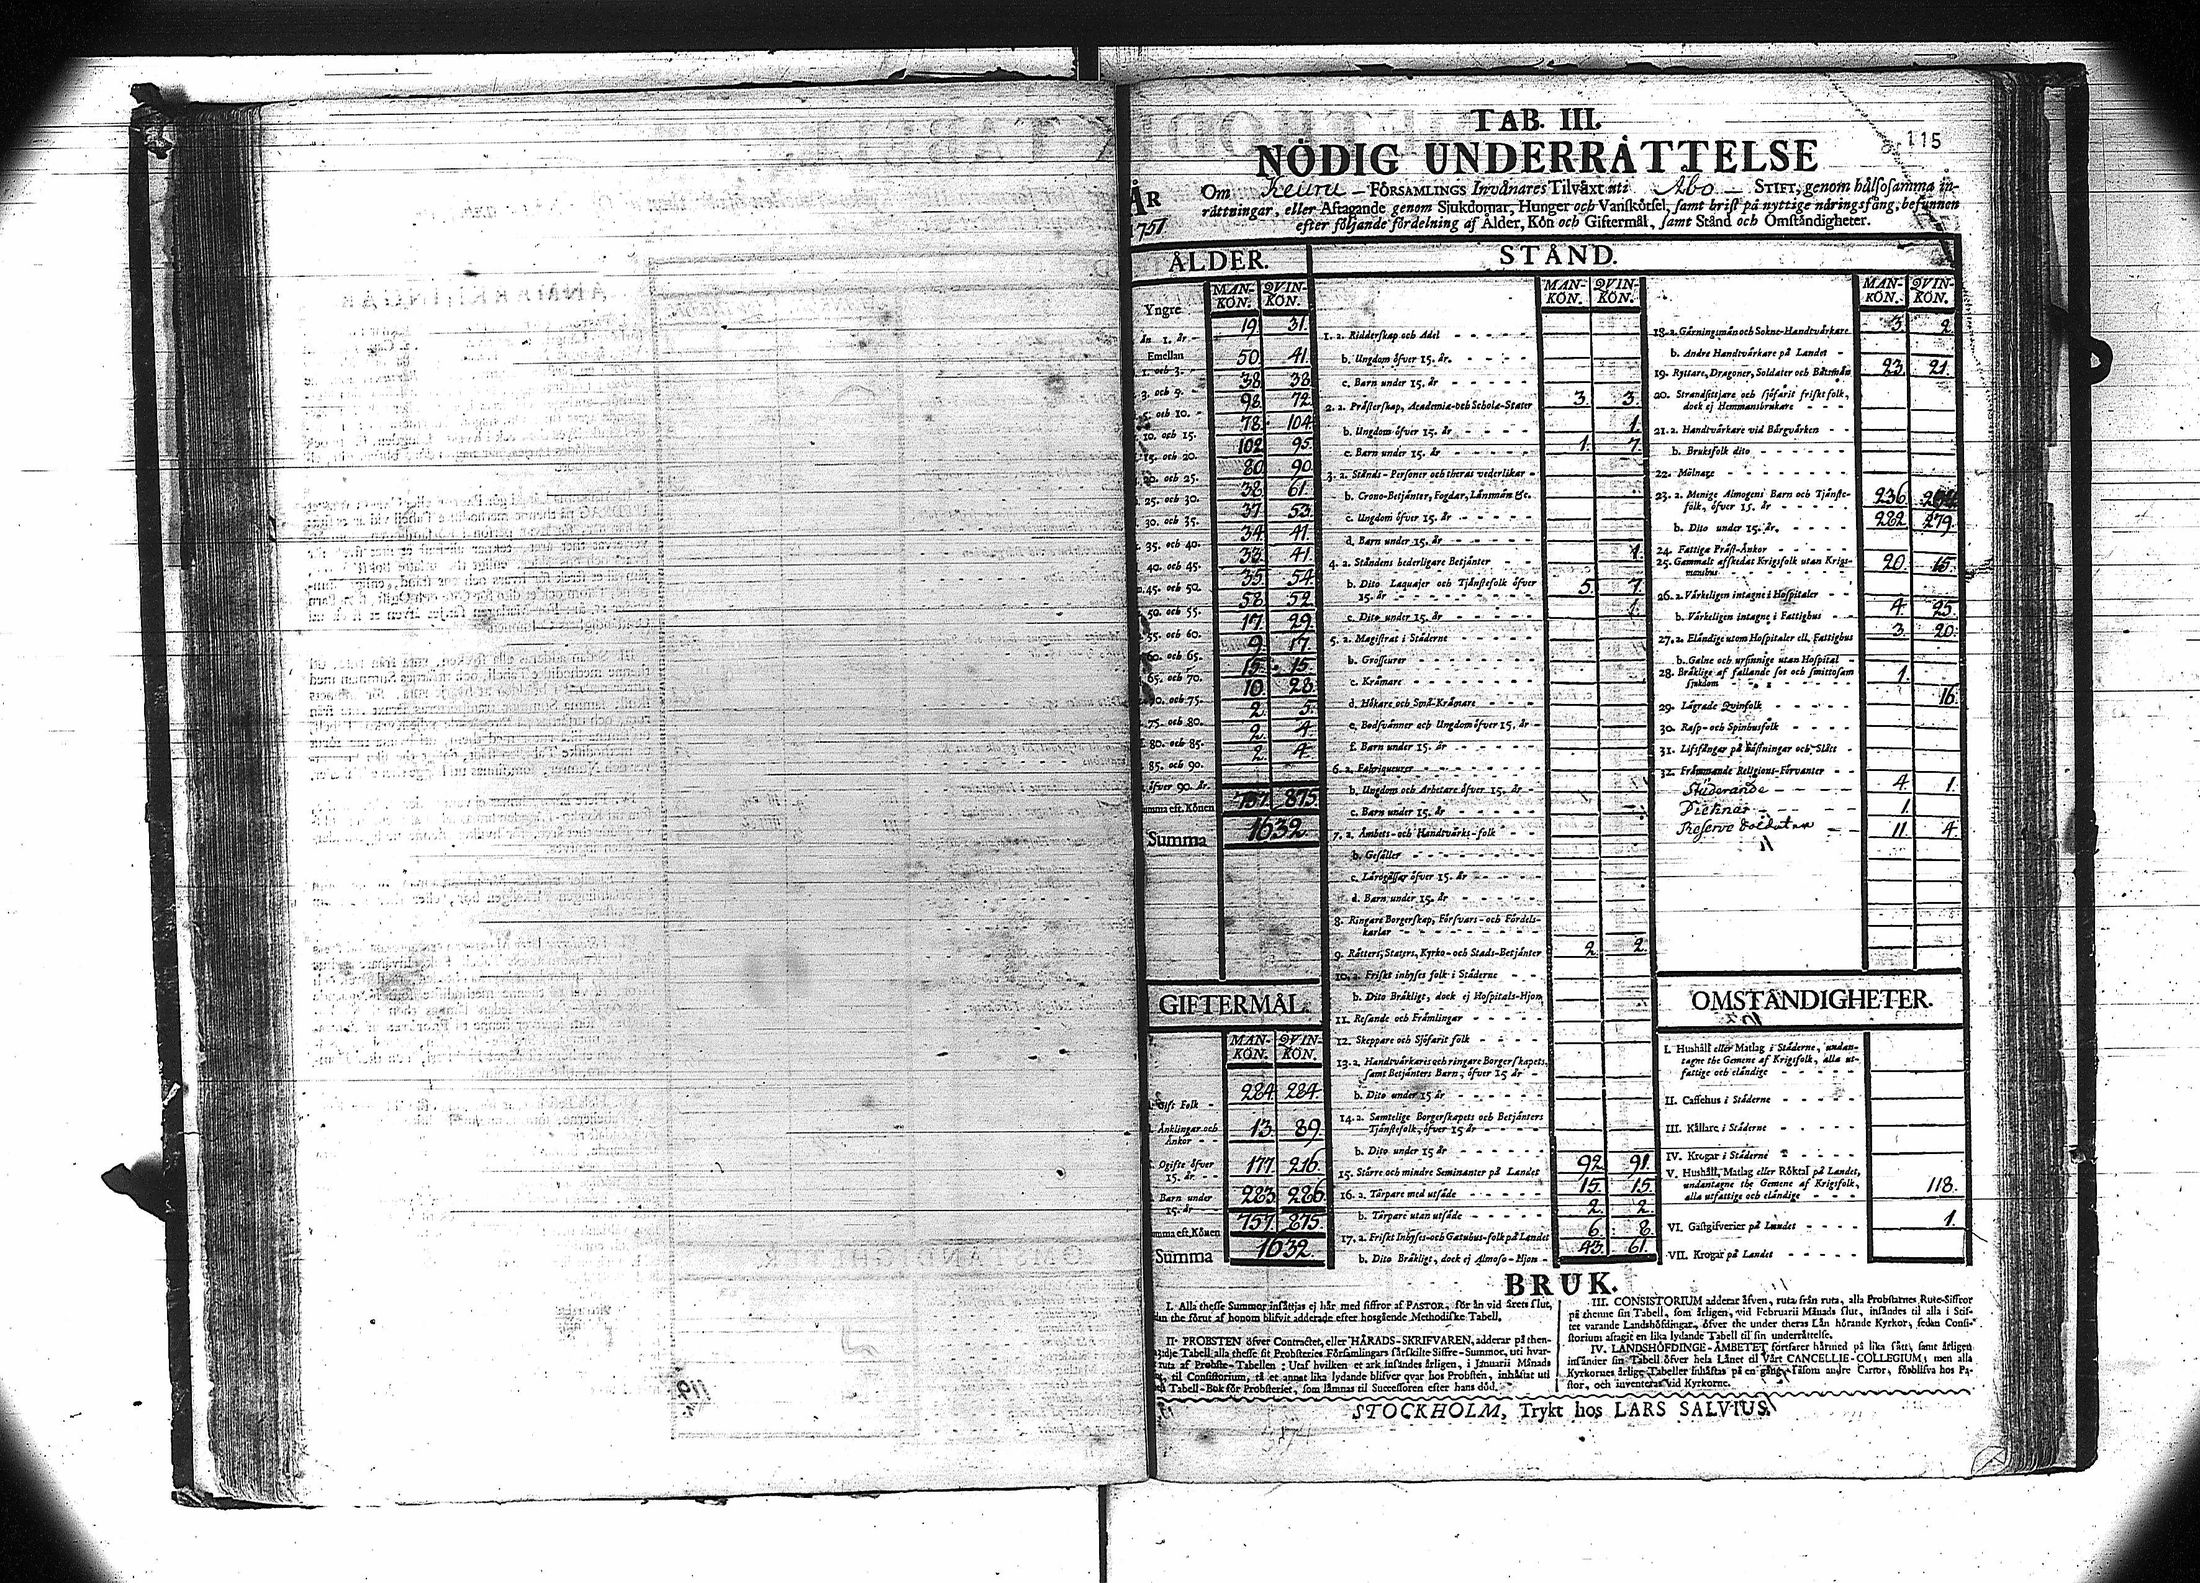 115
TAB. III.
NÖDIG UNDERRÅTTELSE
ÅR 1751
Om Keuru FÖRSAMLINGS Invånares Tilväxt uti Åbo STIFT, genom hålsosamma in-
råttningar, eller Aftagande genom Sjukdomar, Hunger och Vanskötsel, samt brist på nyttige näringsfång, befunnen
efter följande fördelning af Ålder, Kön och Giftermål, samt Stånd och Omständigheter.
ÅLDER.
MAN-KÖN. QVIN-KÖN.
Yngre än 1. år 19. 31.
Emellan 1. och 3. 50. 41.
3. och 5. 38. 38.
5. och 10. 98. 72.
10. och 15. 78. 104.
15. och 20. 102. 95.
20. och 25. 80. 90.
25. och 30. 38. 61.
30. och 35. 37. 53.
35. och 40. 34. 41.
40. och 45. 33. 41.
45. och 50. 35. 54.
50. och 55. 58. 52.
55. och 60. 17. 29.
60. och 65. 9. 17.
65. och 70. 15. 15.
70. och 75. 10. 28.
75. och 80. 2. 5.
80. och 85. 2. 4.
85. och 90. 2. 4.
öfver 90. år
Summa eft. Könen 757. 875.
Summa 1632.
GIFTERMÅL.
MAN-KÖN. QVIN-KÖN.
Gift Folk 284. 284.
Änklingar och Änkor 13. 89.
Ogifte öfver 15. år 177. 216.
Barn under 15. år 283. 286.
Summa eft. Könen 757. 875.
Summa 1632.
STÅND.
MAN-KÖN. QVIN-KÖN.
1. a. Ridderskap och Adel
b. Ungdom öfver 15. år.
c. Barn under 15. år
2. a. Prästerskap, Academiæ-och Scholæ-Stater 3. 3.
b. Ungdom öfver 15. år 1.
c. Barn under 15. år 1. 7.
3. a. Stånds-Personer och theras vederlikar
b. Crono-Betjänter, Fogdar, Länsmän &c.
c. Ungdom öfver 15. år
d. Barn under 15. år
4. a. Ståndens hederligare Betjänter 1.
b. Dito Laquajer och Tjänstefolk öfver 15. år 5. 7.
c. Dito under 15. år 1.
5. a. Magistrat i Städerne
b. Grosseurer
c. Krämare
d. Hökare och Små-Krämare
e. Bodsvänner och Ungdom öfver 15. år
f. Barn under 15. år
6. a. Fabriqueurer
b. Ungdom och Arbetare öfver 15. år
c. Barn under 15. år
7. a. Ämbets-och Handtvärks-folk
b. Gesäller
c. Lärogåssar öfver 15. år
d. Barn under 15. år
8. Ringare Borgerskap, Försvars-och Fördels-karlar
9. Råtters, Staters, Kyrko-och Stads-Betjänter 2. 2.
10. a. Friskt inhyses folk i Städerne
b. Dito Bräkligt, dock ej Hospitals-Hjon
11. Resande och Främlingar
12. Skeppare och Sjöfarit folk
13. a. Handtvärkaris och ringare Borgerskapets, samt Betjänters Barn, öfver 15 år
b. Dito under 15 år
14. a. Samtelige Borgerskapets och Betjänters Tjänstefolk, öfver 15 år
b. Dito under 15 år
15. Större och mindre Hemmanter på Landet 92. 91.
16. a. Tärpare med utsäde 15. 15.
b. Tärpare utan utsäde 2. 2.
17. a. Friskt Inhyses-och Gatuhus-folk på Landet 6. 8.
b. Dito Bräkligt, dock ej Almoso-Hjon 43. 61.
MAN-KÖN. QVIN-KÖN.
18. a. Gärningsmän och Sokne-Handtvärkare 3. 2.
b. Andre Handtvärkare på Landet
19. Ryttare, Dragoner, Soldater och Båtsmän 23. 21.
20. Strandsittjare och sjöfarit friskt folk, dock ej Hemmansbrukare
21. a. Handtvärkare vid Bärgvärken
b. Bruksfolk dito
22. Mölnare
23. a. Menige Almogens Barn och Tjänste-folk, öfver 15. år 236.
b. Dito under 15. år. 282. 279.
24. Fattiga Präst-Änkor
25. Gammalt afskedat Krigsfolk utan Krigsmanshus 20. 15.
26. a. Värkeligen intagne i Hospitaler
b. Värkeligen intagne i Fattighus 4. 25.
27. a. Eländige utom Hospitaler ell. Fattighus 3. 20.
b. Galne och ursinnige utan Hospital
28. Bräklige af fallande sot och smittosam sjukdom 1.
29. Lägrade Qvinfolk 16.
30. Rasp-och Spinhusfolk
31. Lifsfångar på Fästningar och Slått
32. Främmande Religions-Förvanter
Studerande 4. 1.
Dieknar 1.
Reserve Soldater 11. 4.
OMSTÄNDIGHETER.
I. Hushåll eller Matlag i Städerne, undan-
tagne the Gemene af Krigsfolk, alla ut-
fattige och eländige
II. Caffehus i Städerne
III. Källare i Städerne
IV. Krogar i Städerne
V. Hushåll, Matlag eller Röktal på Landet,
undantagne the Gemene af Krigsfolk,
alla utfattige och eländige 118.
VI. Gästgifverier på Landet 1.
VII. Krogar på Landet
BRUK.
I. Alla thesse Summor insättjas ej här med siffror af PASTOR, för än vid årets slut,
än the förut af honom blifvit adderade efter hosgående Methodiske Tabell.
II. PROBSTEN öfver Contractet, eller HÄRADS-SKRIFVAREN, adderar på then-
tredje Tabell alla thesse sit Probsteries Församlingars särskilte Siffre-Summor, uti hvar-
ruta af Probste-Tabellen: Utaf hvilken et ark insändes årligen, i Januarii Månads
til Consistorium, tå et annat lika lydande blifver qvar hos Probsten, inhäftat uti
Tabell-Bok för Probsteriet, som lämnas til Successoren efter hans död.
III. CONSISTORIUM adderar äfven, ruta från ruta, alla Probstarnes Rute-Siffror
på thenne sin Tabell, som årligen, vid Februarii Månads slut, insändes til alla i Stif-
tet varande Landshöfdingar, öfver the under theras Län hörande Kyrkor, sedan Consi-
storium aftagit en lika lydande Tabell til sin underrättelse.
IV. LANDSHÖFDINGE-ÄMBETET fortfarer härmed på lika sätt, samt årligen
insänder sin Tabell öfver hela Länet til Vårt CANCELLIE-COLLEGIUM; men alla
Kyrkornes årlige Tabeller inhäftas på en gång, såsom andre Cartor, förblifva hos Pa-
stor, och inventeras vid Kyrkorne.
STOCKHOLM, Trykt hos LARS SALVIUS.